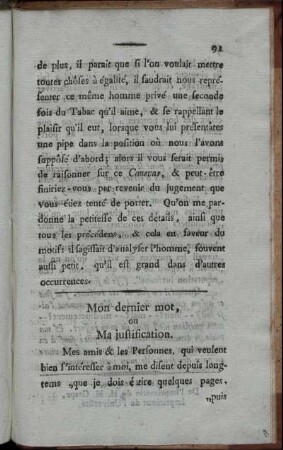 91
de plus, il parait que si l'on voulait mettre
toutes chôses à égalité, il faudrait nous repré-
senter ce même homme privé une seconde
fois du Tabac qu'il aime, & se rappellant le
plaisir qu'il eut, lorsque vous lui présentates
une pipe dans la position où nous l'avons
suppôsé d'abord; alors il vous serait permis
de raisonner sur ce Canevas, & peut-être
finiriez-vous par revenir du jugement que
vous édiez tenté de porter. Qu'on me par-
donne la petitesse de ces détails, ainsi que
tous les précédens, & cela en faveur du
motif: il s'agissait d'analyser l'homme, souvent
aussi petit, qu'il est grand dans d'autres
occurrences.
Mon dernier mot,
ou
Ma justification.
Mes amis & les Personnes, qui veulent
bien s'intéresser à moi, me disent depuis long-
tems „que je dois écrire quelques pages,
„puis